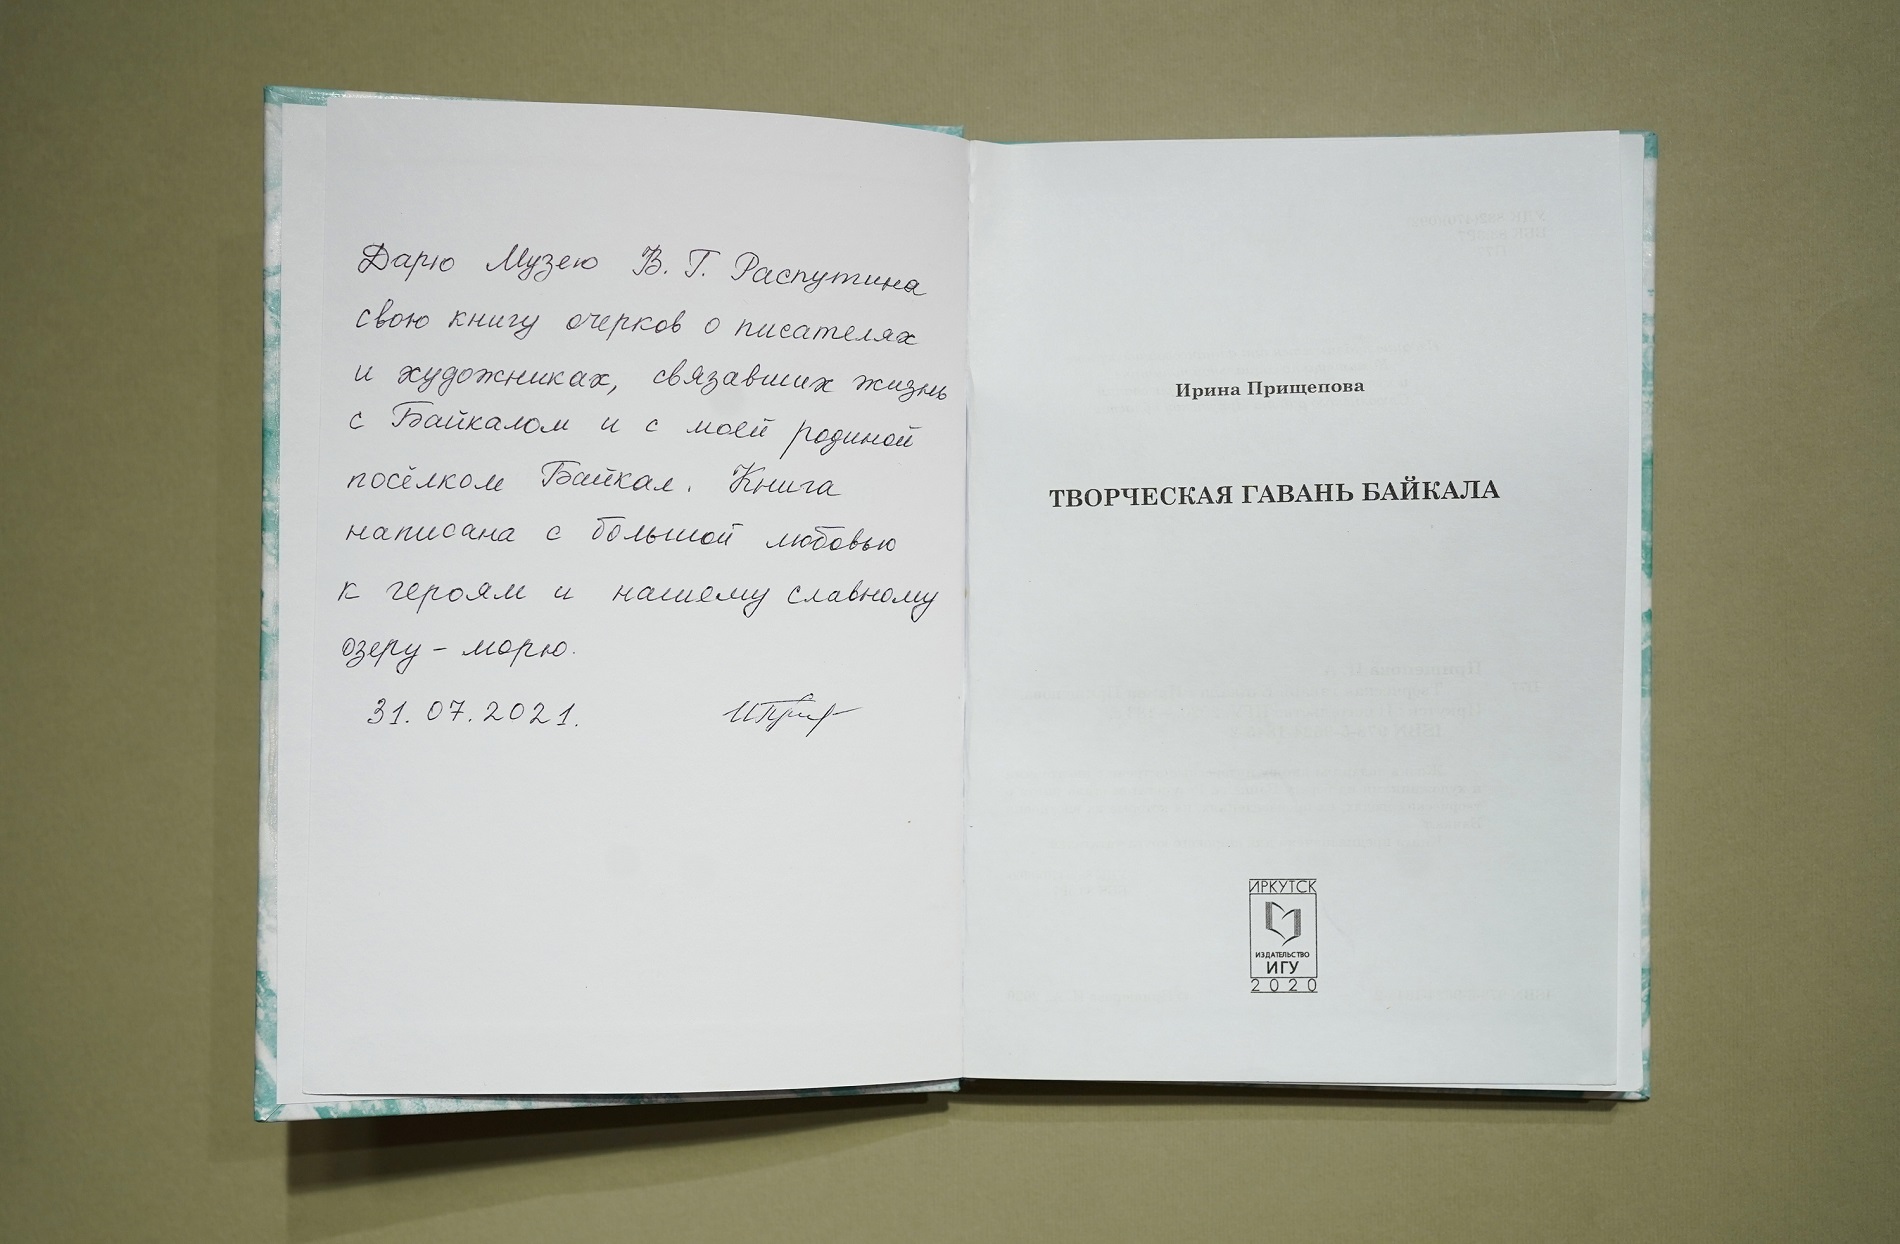 Дарю Музею В. Г. Распутина
свою книгу очерков о писателях
и художниках, связавших жизнь
с Байкалом и с моей родиной
посёлком Байкал. Книга
написана с большой любовью
к героям и нашему славному
озеру - морю.
31. 07. 2021.
Ирина Прищепова
ТВОРЧЕСКАЯ ГАВАНЬ БАЙКАЛА
ИРКУТСК
ИЗДАТЕЛЬСТВО
ИГУ
2020